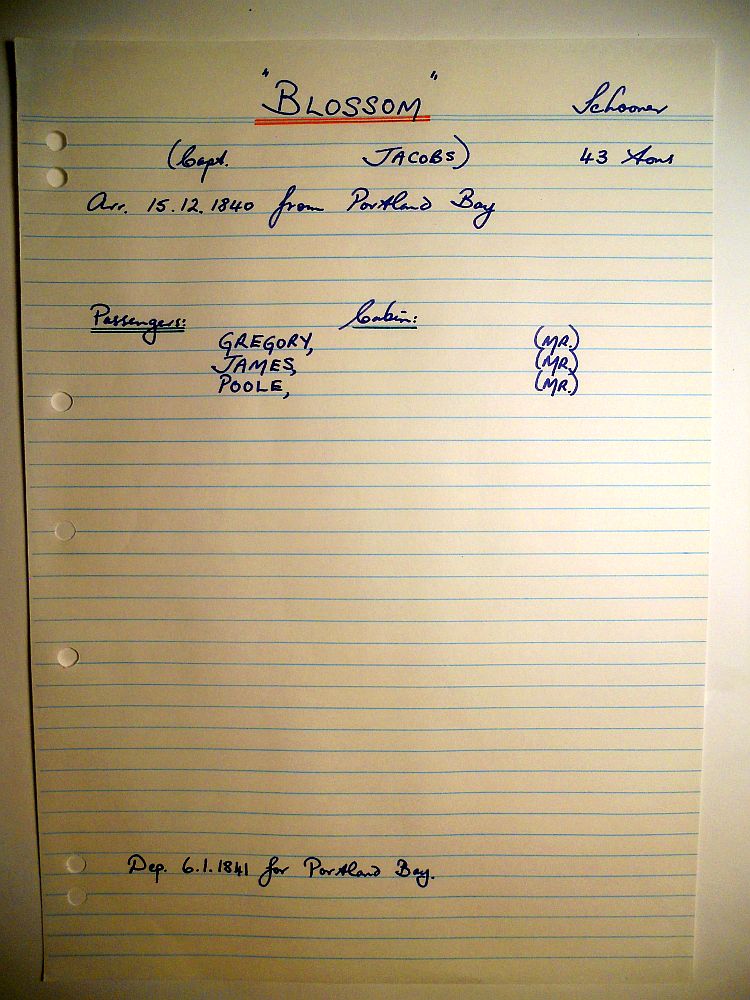 "BLOSSOM" Schooner
(Capt. JACOBS) 43 tons
Arr. 15.12.1840 from Portland Bay
Passengers: Cabin:
GREGORY, (MR.)
JAMES, (MR.)
POOLE, (MR.)
Dep. 6.1.1841 for Portland Bay.